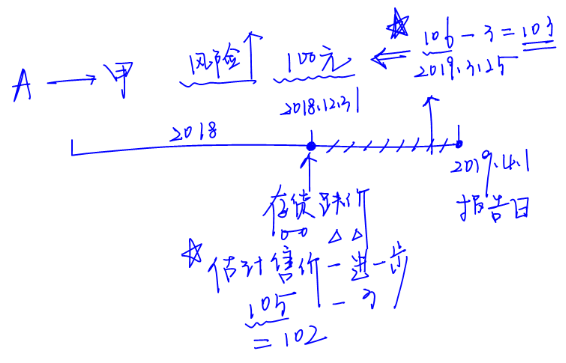 106 - 3 = 103
A → 甲 风险↑ 100元 ⇐ 2019.3.25
2018.12.31
2018
2019.4.1
报告日
存货跌价
估计售价 - 进一步
105 - 3
= 102